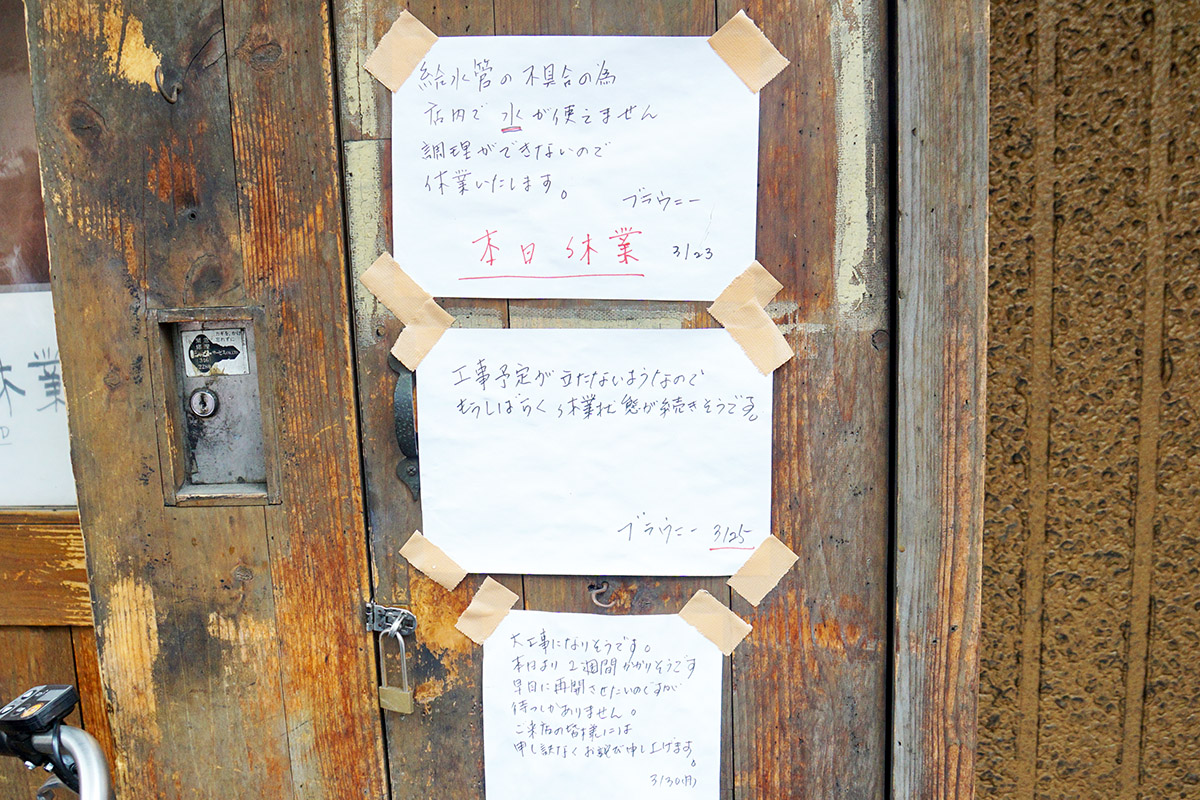 給水管の不具合の為
店内で水が使えません
調理ができないので
休業いたします。
ブラウニー
本日休業 3/23
工事予定が立たないようなので
もうしばらく休業状態が続きそうです。
ブラウニー 3/25
大工事になりそうです。
本日より2週間かかりそうです
早目に再開させたいのですが
待つしかありません。
ご来店の皆様には
申し訳なくお詫び申し上げます。
3/30(月)
休業